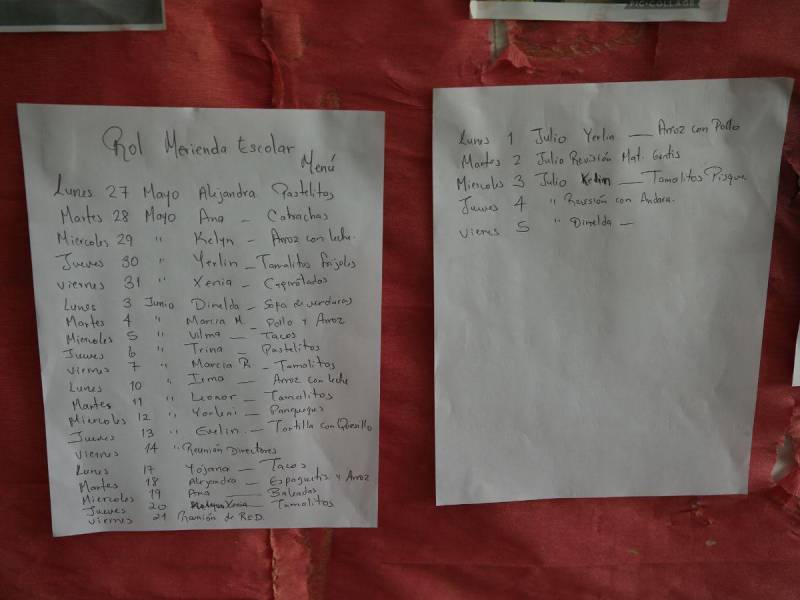 PICICOLLAGE
Rol Merienda Escolar
Menú
Lunes 27 Mayo Alejandra Pastelitos
Martes 28 Mayo Ana - Catrachas
Miercoles 29 " Kelyn - Arroz con leche.
Jueves 30 " Yerlin - Tamalitos frijoles
viernes 31 " Xenia - Capirotadas
Lunes 3 Junio Dinelda - Sopa de verduras
Martes 4 " Marcia M. - Pollo y Arroz
Miercoles 5 " Vilma - Tacos
Jueves 6 " Trina - Pastelitos
viernes 7 " Marcia R. - Tamalitos
Lunes 10 " Irma - Arroz con leche
Martes 11 " Leonor - Tamalitos
Miercoles 12 " Yorleni - Panqueques
Jueves 13 " Evelin - Tortilla con Quesillo
viernes 14 " Reunión Directores
Lunes 17 Yojana - Tacos
Martes 18 Alejandra - Espaguetis y Arroz
Miercoles 19 Ana - Baleadas
Jueves 20 Xenia - Tamalitos
viernes 21 Reunión de RED.
Lunes 1 Julio Yerlin - Arroz con Pollo
Martes 2 Julio Revisión Mat. Gratis
Miercoles 3 Julio Kelin - Tamalitos Pisque
Jueves 4 " Revisión con Andara.
viernes 5 " Dinelda -